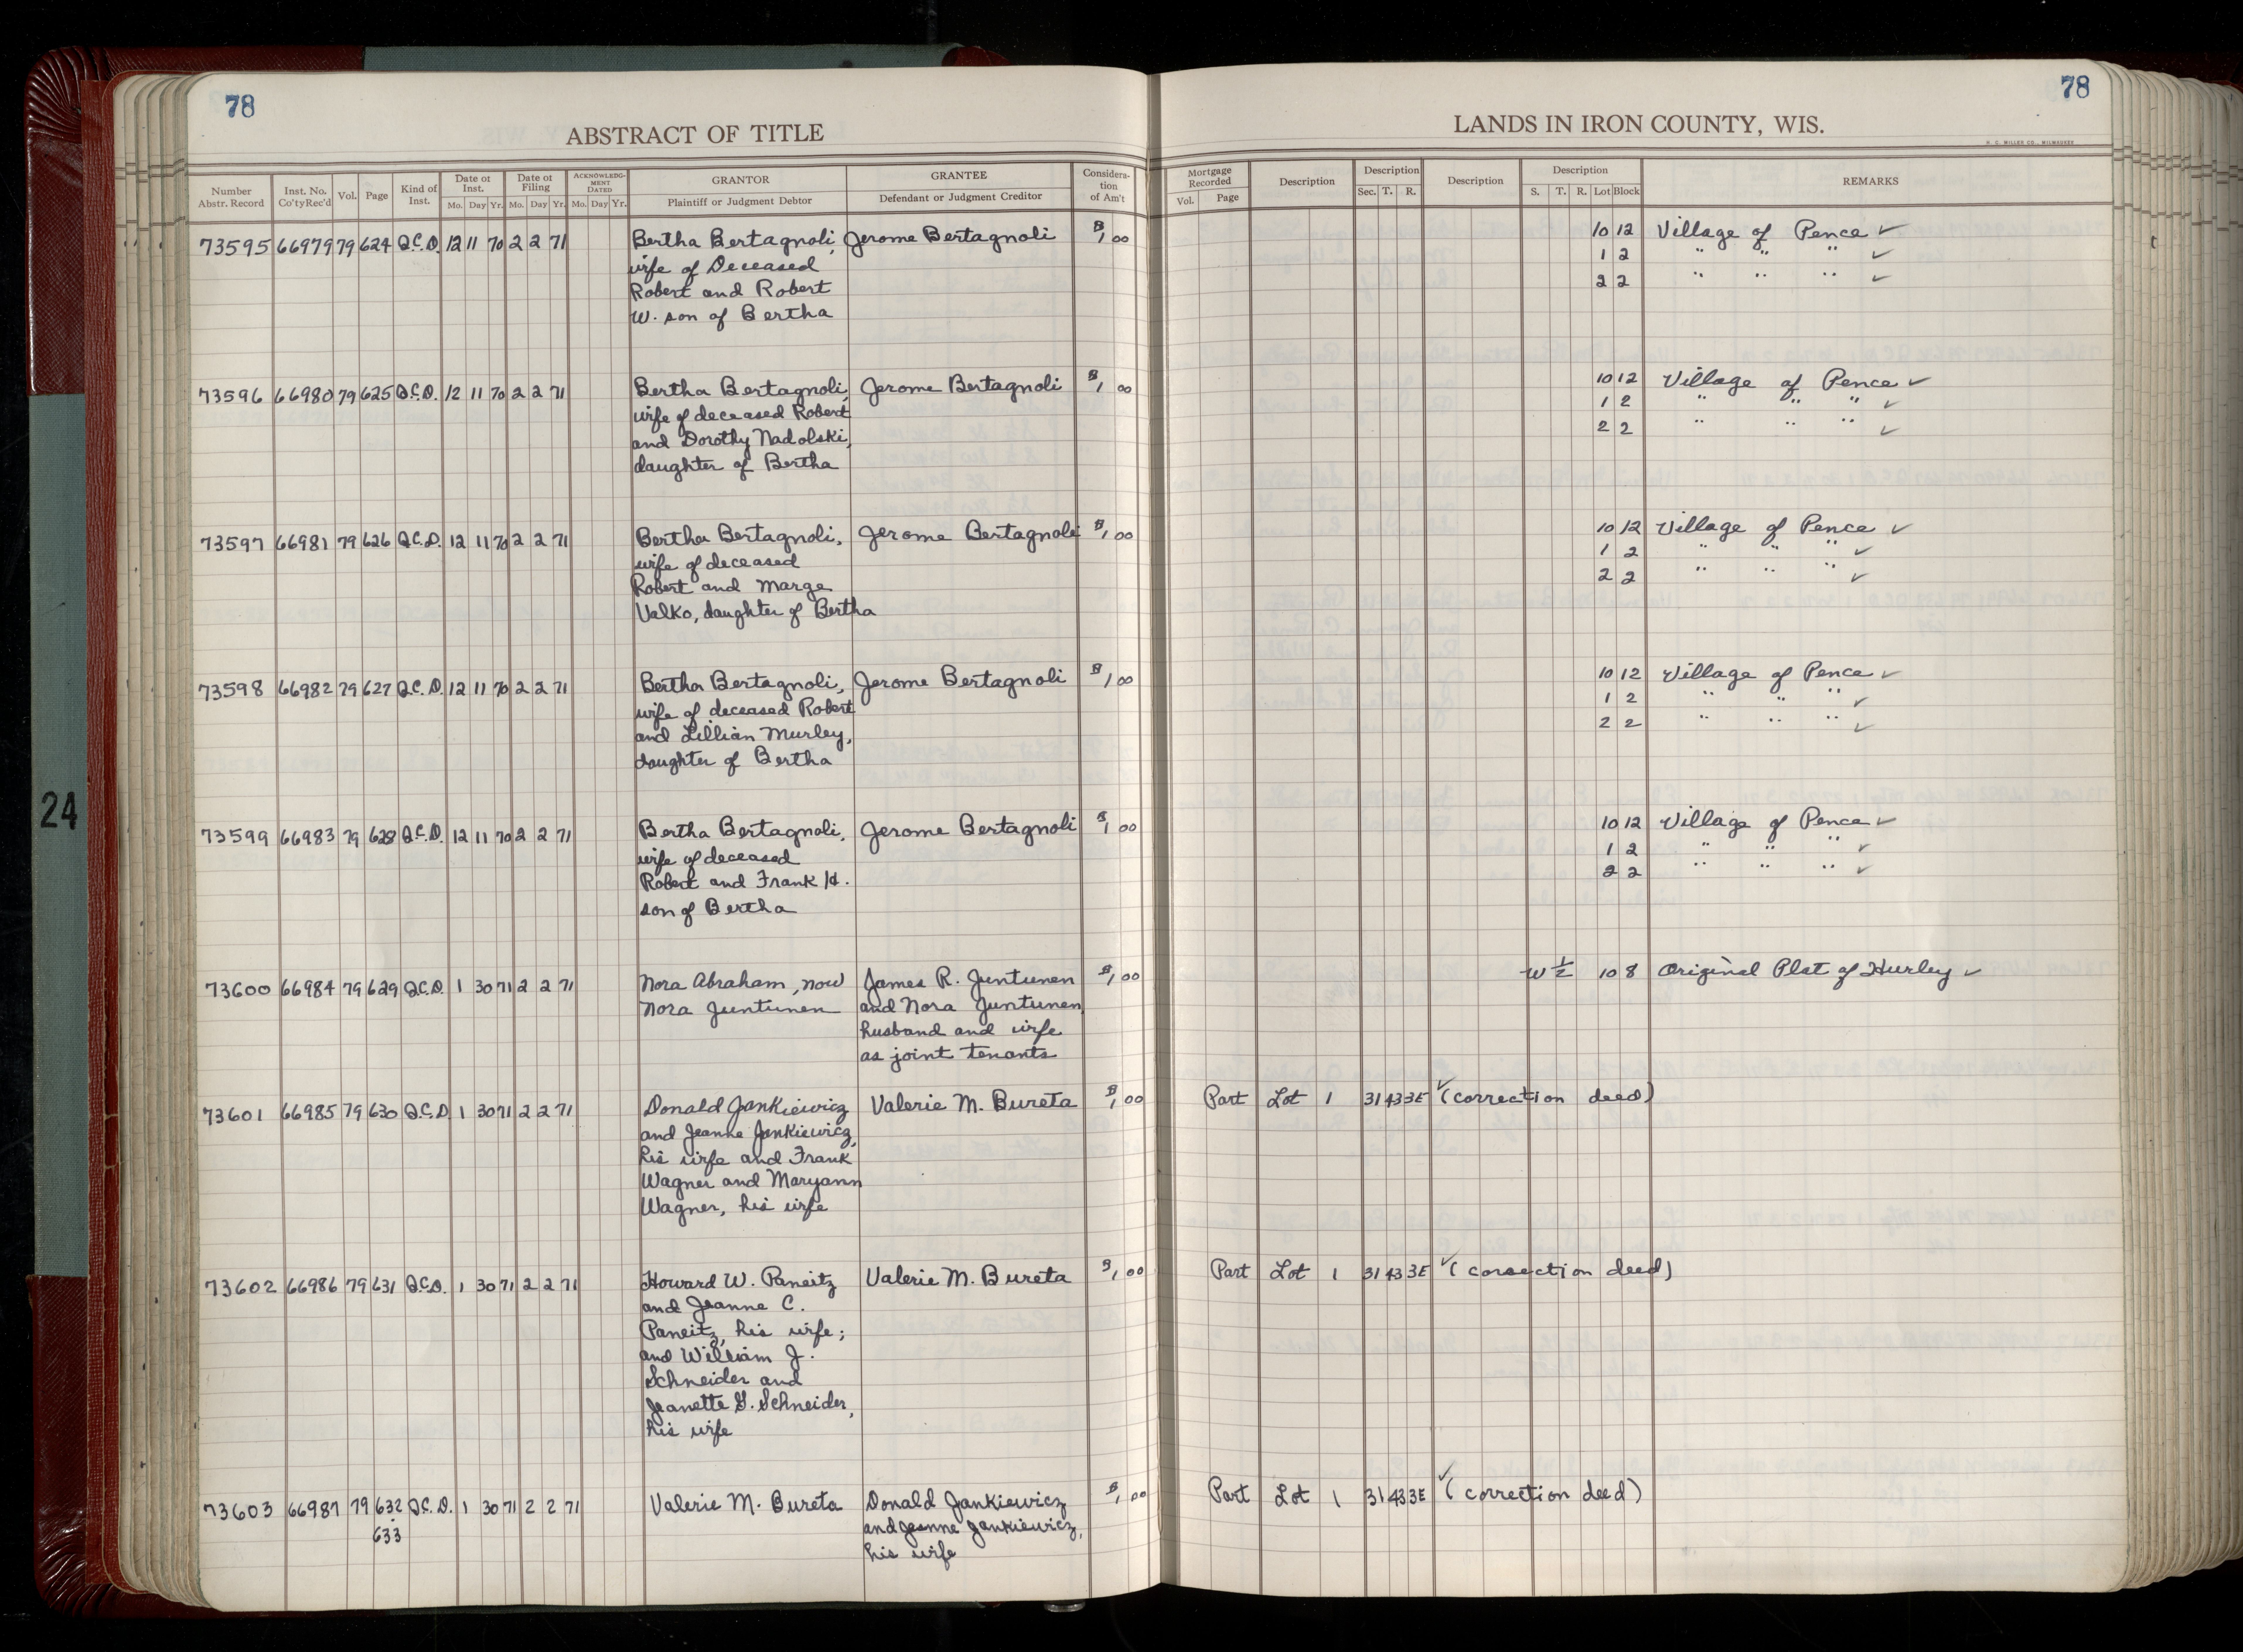 78
ABSTRACT OF TITLE
78
LANDS IN IRON COUNTY, WIS.
H. C. MILLER CO., MILWAUKEE
Number Abstr. Record | Inst. No. Co'ty Rec'd | Vol. | Page | Kind of Inst. | Date of Inst. Mo. Day Yr. | Date of Filing Mo. Day Yr. | ACKNOWLEDG-MENT DATED Mo. Day Yr. | GRANTOR Plaintiff or Judgment Debtor | GRANTEE Defendant or Judgment Creditor | Considera-tion of Am't | Mortgage Recorded Vol. Page | Description | Description Sec. T. R. | Description | Description S. T. R. Lot Block | REMARKS
73595 66979 79 624 Q.C.D. 12 11 70 2 2 71 Bertha Bertagnoli, Jerome Bertagnoli $1,00 10 12 Village of Pence ✓
wife of Deceased 1 2 " " " ✓
Robert and Robert 2 2 " " " ✓
W. son of Bertha
73596 66980 79 625 Q.C.D. 12 11 70 2 2 71 Bertha Bertagnoli, Jerome Bertagnoli $1,00 10 12 Village of Pence ✓
wife of deceased Robert 1 2 " " " ✓
and Dorothy Nadolski, 2 2 " " " ✓
daughter of Bertha
73597 66981 79 626 Q.C.D. 12 11 70 2 2 71 Bertha Bertagnoli, Jerome Bertagnoli $1,00 10 12 Village of Pence ✓
wife of deceased 1 2 " " " ✓
Robert and Marge 2 2 " " " ✓
Valko, daughter of Bertha
73598 66982 79 627 Q.C.D. 12 11 70 2 2 71 Bertha Bertagnoli, Jerome Bertagnoli $1,00 10 12 Village of Pence ✓
wife of deceased Robert 1 2 " " " ✓
and Lillian Murley, 2 2 " " " ✓
daughter of Bertha
24
73599 66983 79 628 Q.C.D. 12 11 70 2 2 71 Bertha Bertagnoli, Jerome Bertagnoli $1,00 10 12 Village of Pence ✓
wife of deceased 1 2 " " " ✓
Robert and Frank H. 2 2 " " " ✓
son of Bertha
73600 66984 79 629 Q.C.D. 1 30 71 2 2 71 Nora Abraham, now James R. Juntunen $1,00 W 1/2 10 8 Original Plat of Hurley ✓
Nora Juntunen and Nora Juntunen,
husband and wife
as joint tenants
73601 66985 79 630 Q.C.D. 1 30 71 2 2 71 Donald Jankiewicz Valerie M. Bureta $1,00 Part Lot 1 31 43 3E ✓ (correction deed)
and Jeanne Jankiewicz,
his wife and Frank
Wagner and Maryann
Wagner, his wife
73602 66986 79 631 Q.C.D. 1 30 71 2 2 71 Howard W. Paneitz Valerie M. Bureta $1,00 Part Lot 1 31 43 3E ✓ (correction deed)
and Jeanne C.
Paneitz, his wife;
and William J.
Schneider and
Jeanette G. Schneider,
his wife
73603 66987 79 632 Q.C.D. 1 30 71 2 2 71 Valerie M. Bureta Donald Jankiewicz $1,00 Part Lot 1 31 43 3E ✓ (correction deed)
633 and Jeanne Jankiewicz,
his wife